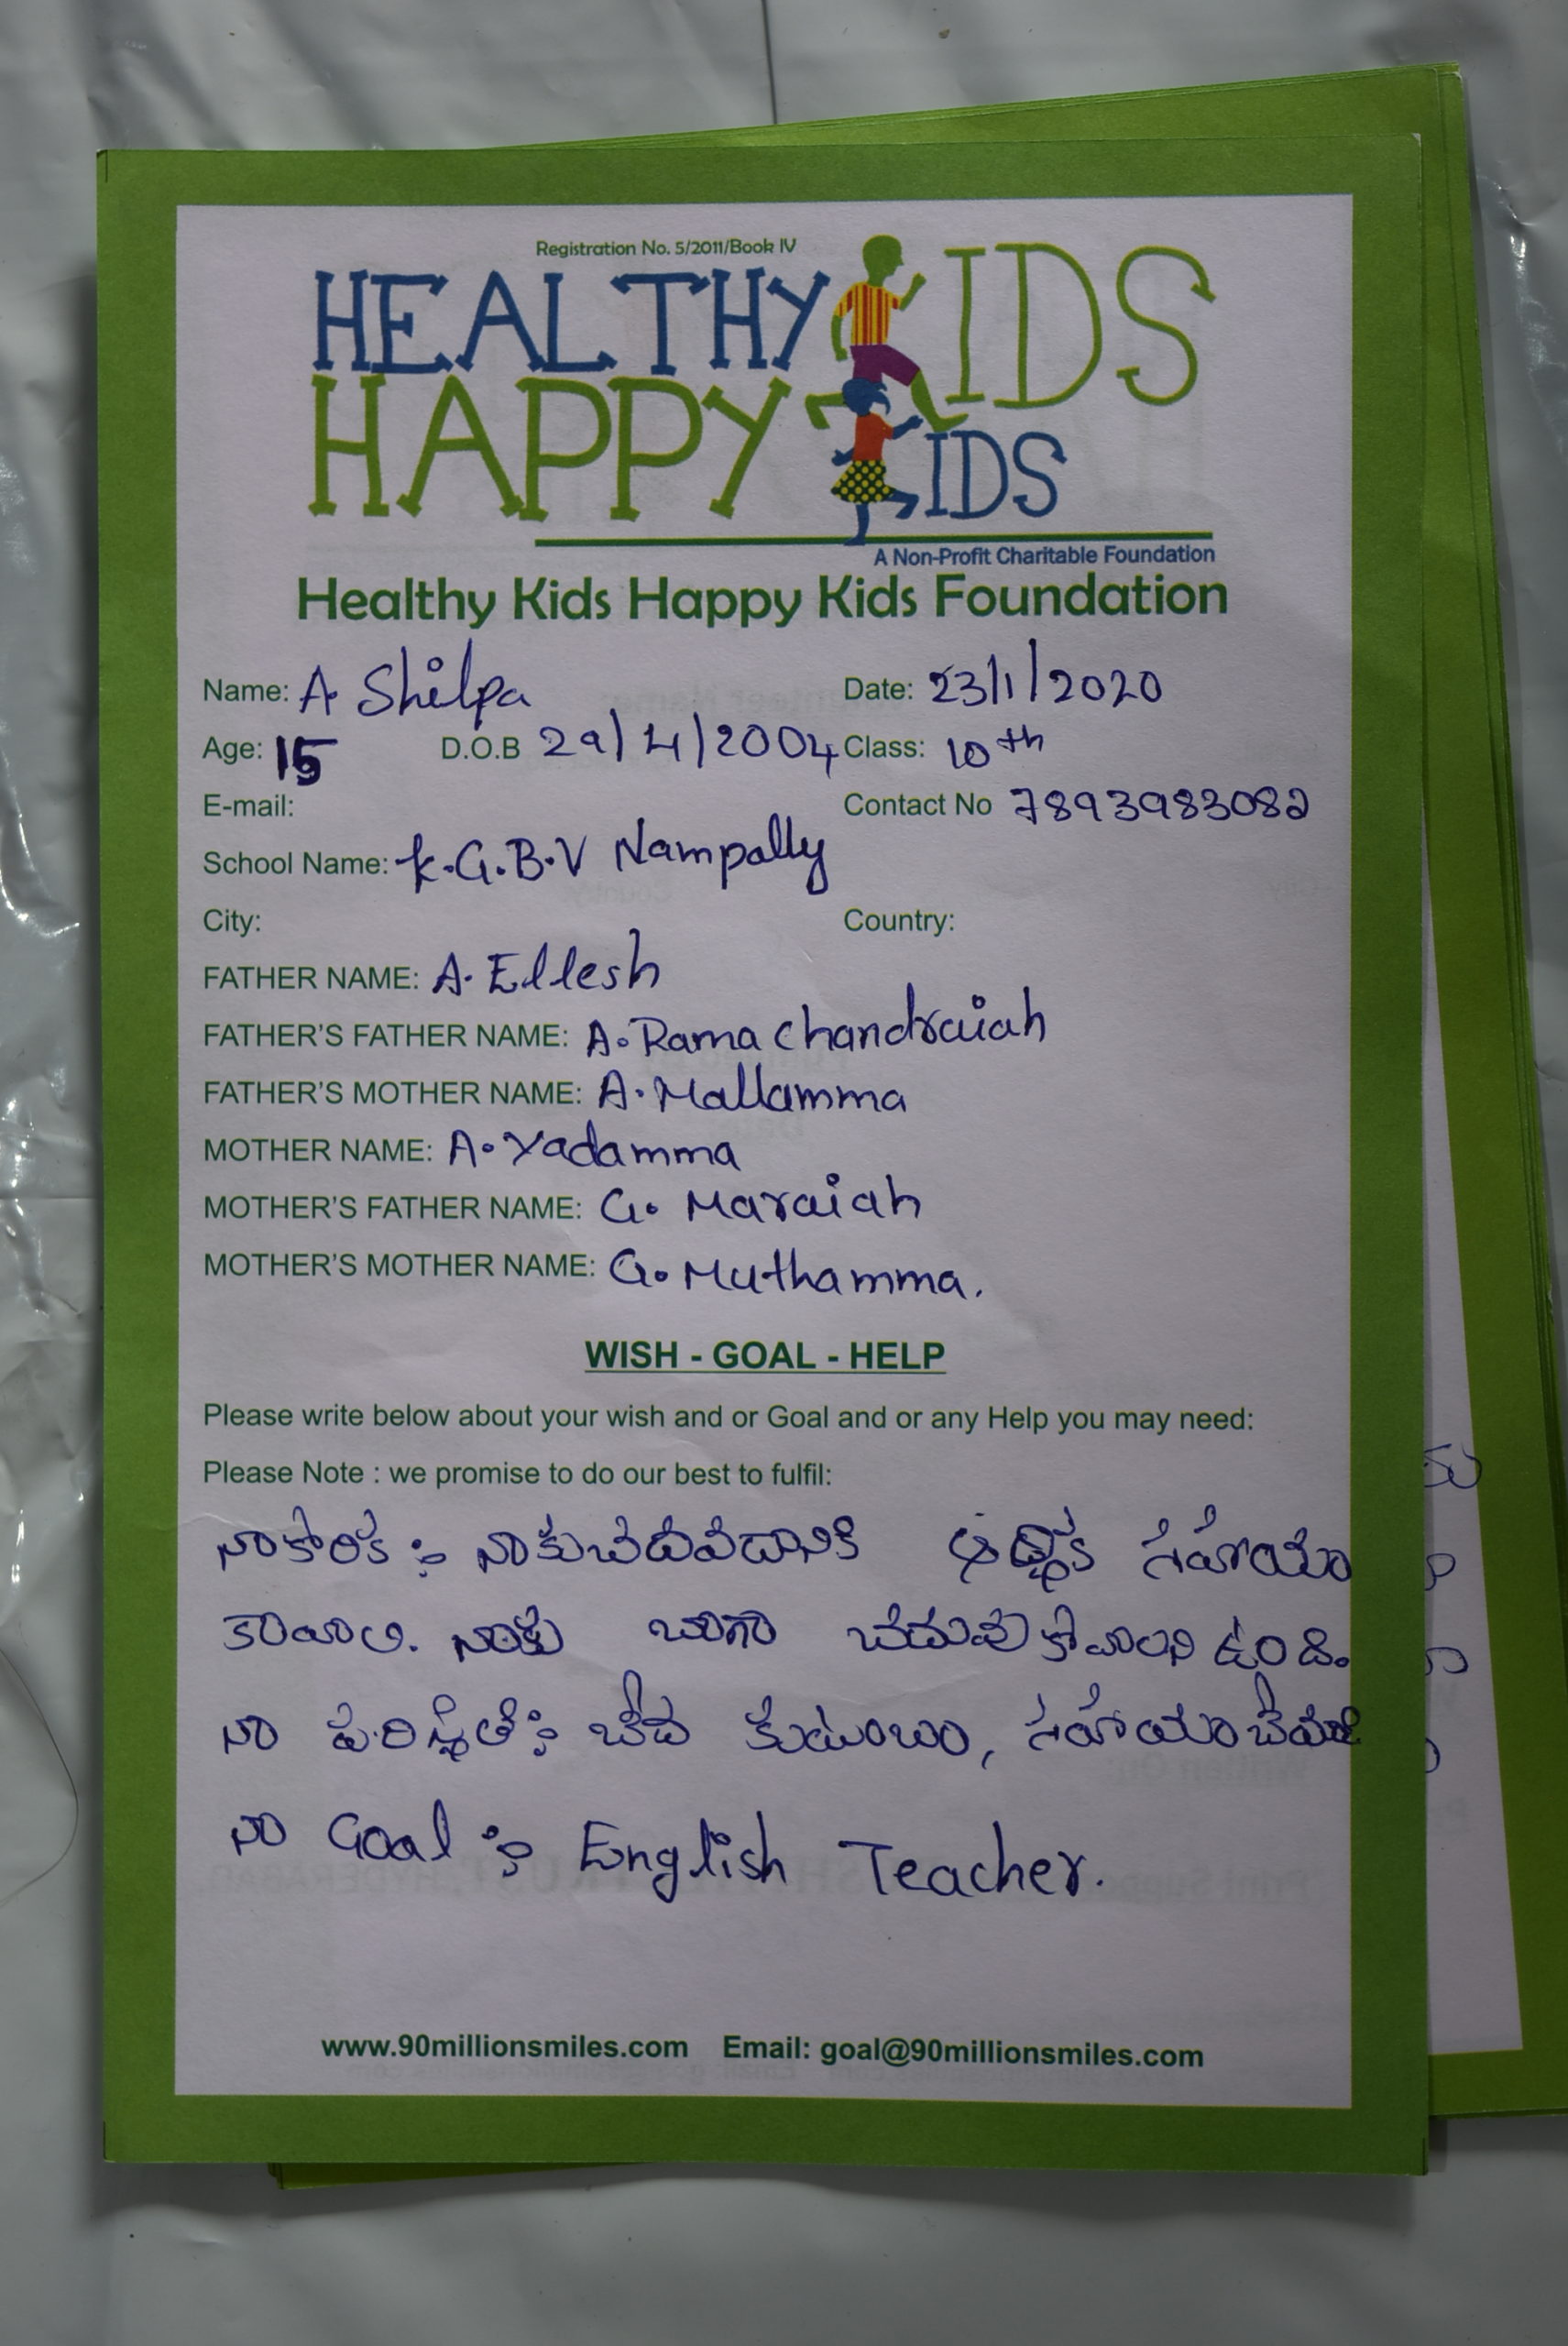 Registration No. 5/2011/Book IV
HEALTHY KIDS
HAPPY KIDS
A Non-Profit Charitable Foundation
Healthy Kids Happy Kids Foundation
Name: A Shilpa Date: 23/1/2020
Age: 15 D.O.B 29/4/2004 Class: 10th
E-mail: Contact No 7893983082
School Name: K.G.B.V Nampally
City: Country:
FATHER NAME: A. Ellesh
FATHER'S FATHER NAME: A. Rama chandraiah
FATHER'S MOTHER NAME: A. Mallamma
MOTHER NAME: A. Yadamma
MOTHER'S FATHER NAME: G. Maraiah
MOTHER'S MOTHER NAME: G. Muthamma.
WISH - GOAL - HELP
Please write below about your wish and or Goal and or any Help you may need:
Please Note : we promise to do our best to fulfil:
నాకోరిక :- నాకుచదవడానికి ఆర్థిక సహాయం
కావాలి. నాకు బాగా చదువుకోవాలని ఉంది.
నా పరిస్థితి :- బీద కుటుంబం, సహాయం
నా Goal :- English Teacher.
www.90millionsmiles.com Email: goal@90millionsmiles.com